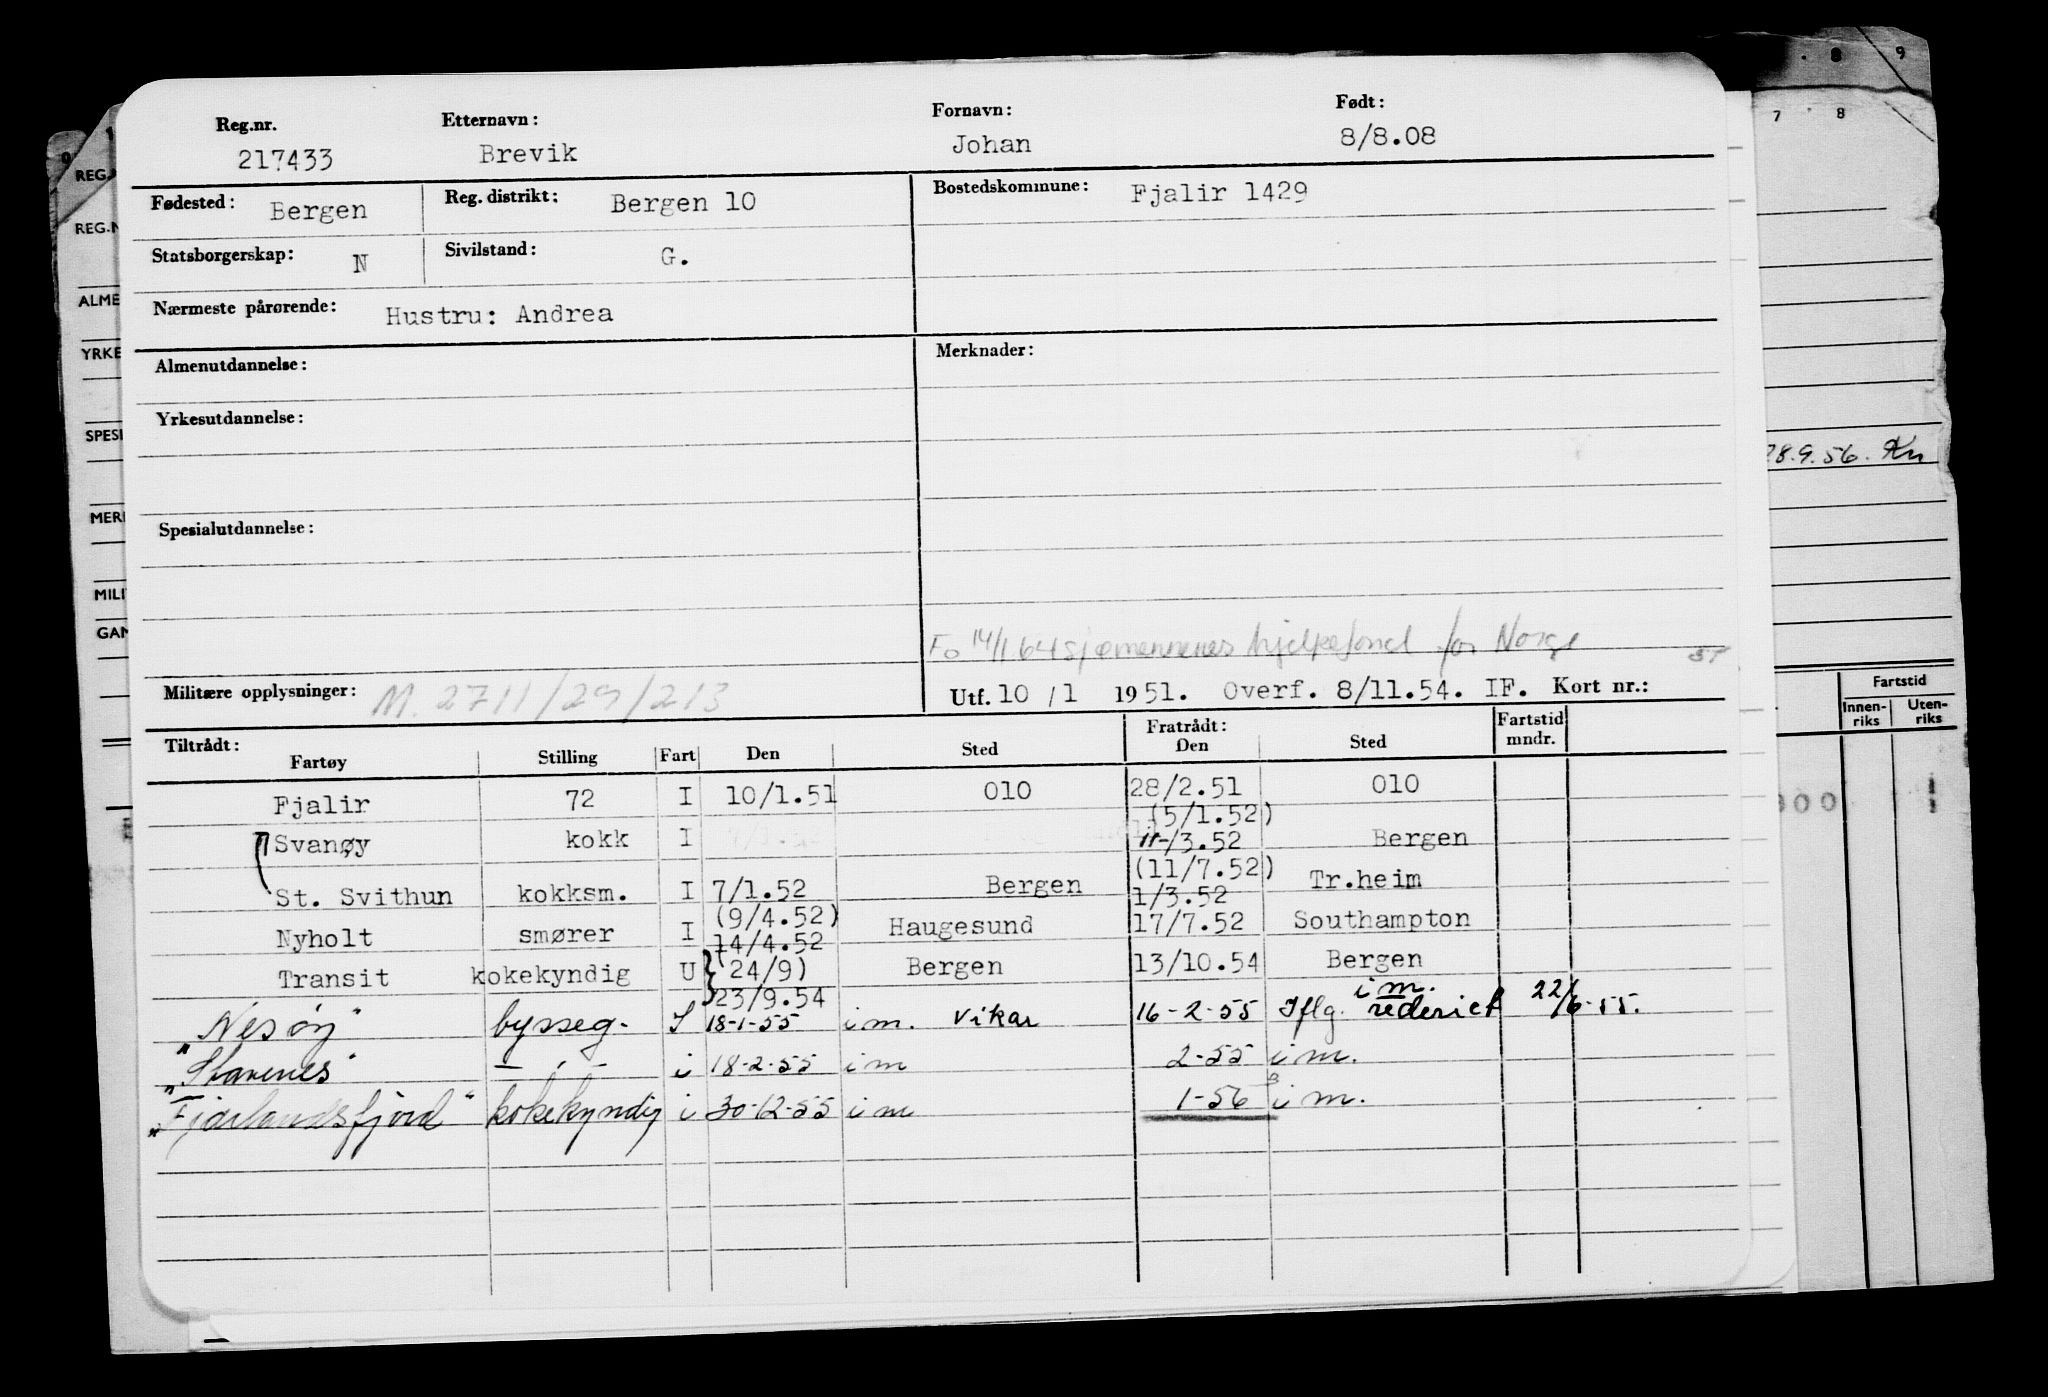 Reg.nr. Etternavn: Fornavn: Født:
217433 Brevik Johan 8/8.08
Fødested: Bergen Reg. distrikt: Bergen 10 Bostedskommune: Fjalir 1429
Statsborgerskap: N Sivilstand: G.
Nærmeste pårørende: Hustru: Andrea
Almenutdannelse: Merknader:
Yrkesutdannelse:
Spesialutdannelse:
Fo 14/1.64 sjømennenes hjelpefond for Norge ST
Militære opplysninger: M. 2711/29/213 Utf. 10/1 1951. Overf. 8/11.54. IF. Kort nr.:
Tiltrådt: Fratrådt: Fartstid
Fartøy Stilling Fart Den Sted Den Sted mndr.
Fjalir 72 I 10/1.51 010 28/2.51 010
(5/1.52)
Svanøy kokk I 11/3.52 Bergen
(11/7.52)
St. Svithun kokksm. I 7/1.52 Bergen 1/3.52 Tr.heim
(9/4.52)
Nyholt smører I 14/4.52 Haugesund 17/7.52 Southampton
Transit kokekyndig U (24/9) Bergen 13/10.54 Bergen
23/9.54 i m.
"Nesøy" bysseg. I 18-1-55 i m. Vikar 16-2-55 Iflg. rederiet 22/6-55.
"Stavenes" — " — i 18-2-55 i m 2-55 i m.
"Fjærlandsfjord" kokekyndig i 30-12-55 i m 1-56 i m.
8 9
7 8
REG.
REG.N
ALME
YRKE
SPESI
MERK
MILIT
GAN
28.9.56.
Fartstid
Innen-riks Uten-riks